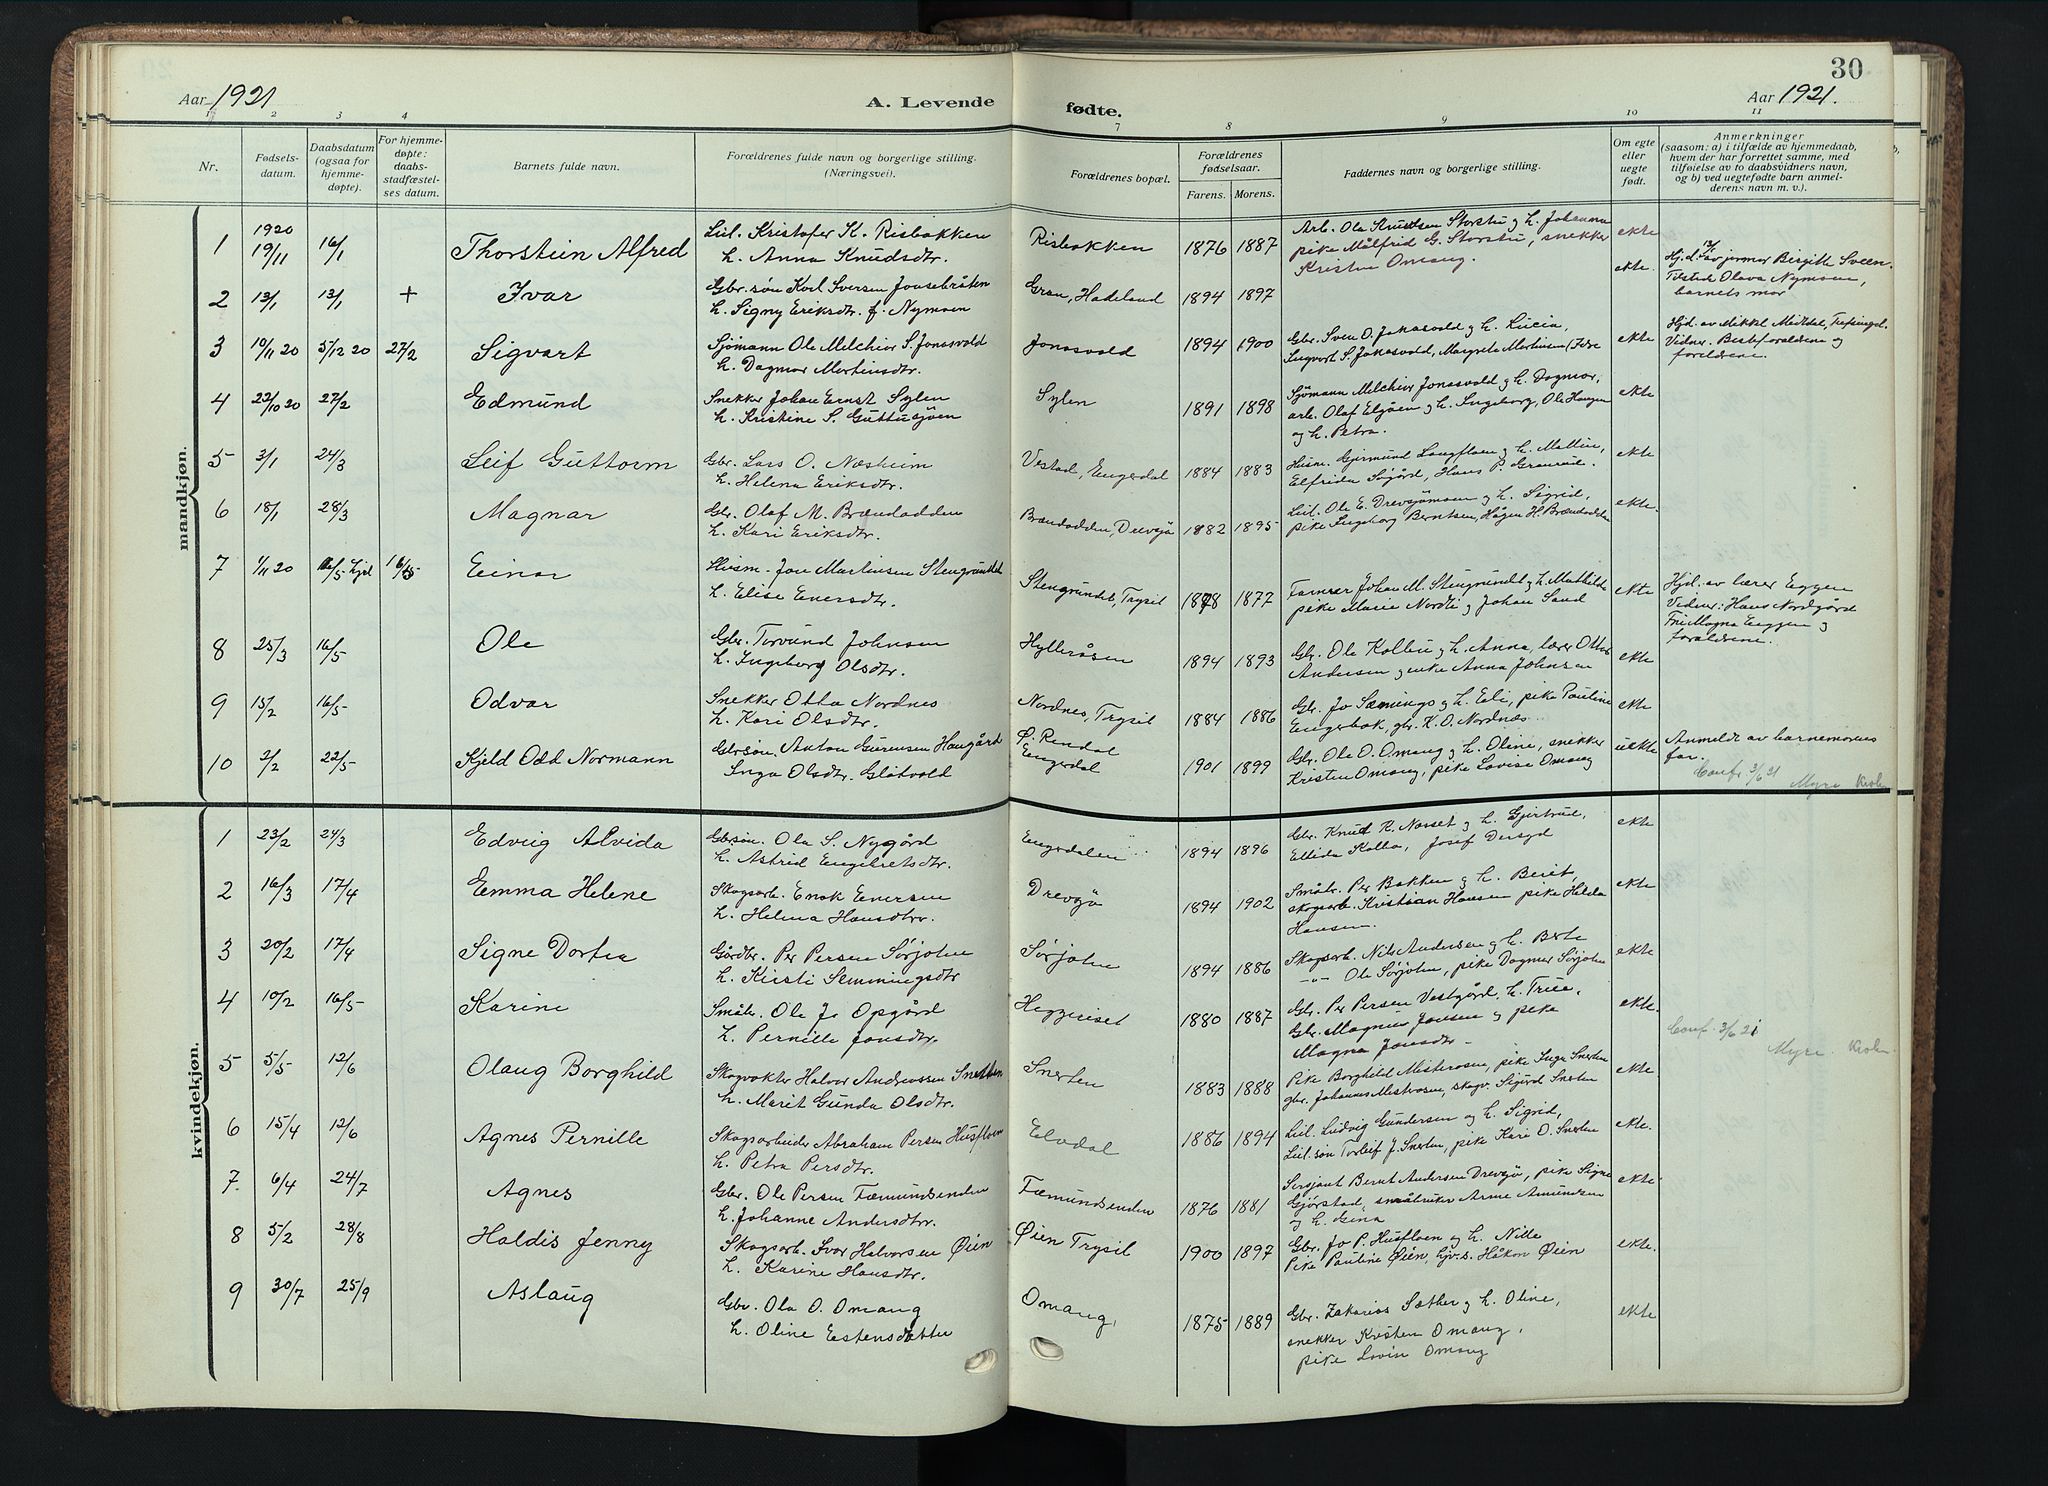 Aar 1921
A. Levende
fødte.
Aar 1921.
30
1 2 3 4 7 8 9 10 11
Nr.
Fødsels-
datum.
Daabsdatum
(ogsaa for
hjemme-
døpte).
For hjemme-
døpte:
daabs-
stadfæstel-
ses datum.
Barnets fulde navn.
Forældrenes fulde navn og borgerlige stilling.
(Næringsvei).
Forældrenes bopæl.
Forældrenes
fødselsaar.
Farens. Morens.
Faddernes navn og borgerlige stilling.
Om egte
eller
uegte
født.
Anmerkninger
(saasom: a) i tilfælde av hjemmedaab,
hvem der har forrettet samme, med
tilføielse av to daabsvidners navn,
og b) ved uegtefødte barn anmel-
derens navn m. v.).
mandkjøn.
1 1920 19/11 16/1 Thorstein Alfred
Lül. Kristofer K. Risbakken
h. Anna Knudsdtr.
Risbakken 1876 1887
Arb. Ole Knudsen Storstu og h. Johanna
pike Målfrid G. Storstu, snekker
Kristen Omang.
ekte
2 13/1 13/1 + Ivar
Gbr.søn Karl Iversen Jonsebråten
h. Signy Eriksdtr. f. Nymoen
Gran, Hadeland 1894 1897
ekte.
Hj.d. 13/1 av jormor Birgitte Sveen.
Tilstede Olava Nymoen,
barnets mor
3 10/11 20 5/12 20 27/2 Sigvart
Sjømann Ole Melchior S. Jonasvold
h. Dagmar Martinsdtr.
Jonasvold 1894 1900
Gbr. Sven O. Jonasvold og h. Lucia,
Ingvart S. Jonasvold, Margrete Martinsen
ekte
Hjd. av Mikkel Meitdal,
Vidner: Besteforældrene og
foreldrene.
4 22/10 20 27/2 Edmund
Snekker Johan Ernst Sylen
h. Kristine S. Guttusjøen
Sylen 1891 1898
Sjømann Melchior Jonasvold og h. Dagmar,
arb. Olaf Elgåen og h. Ingeborg, Ole Haugen
og h. Petra.
ekte
5 3/1 24/3 Leif Guttorm
Gbr. Lars O. Næsheim
h. Helena Eriksdtr.
Vestad, Engerdal 1884 1883
Husm. Gjermund Langfloen og h. Mallin,
Elfrida Søgård, Hans P. Granrud.
ekte
6 18/1 28/3 Magnar
Gbr. Olaf M. Brændodden
h. Kari Eriksdtr.
Brændodden, Drevsjø 1882 1895
Lül. Ole E. Drevsjømoen og h. Sigrid,
pike Ingeborg Berntsen, Hågen H. Brændodden
ekte.
7 1/11 20 16/5 hjd 16/5 Einar
Husm. Jon Martinsen Stengrundet
h. Elise Enersdtr.
Stengrundet, Trysil 1878 1872
Tømrer Johan M. Stengrundet og h. Mathilde
pike Marie Nordli og Johan Sand
ekte
Hjd. av lærer Eggen
Vidner: Hans Nordgård
Fru Magna Eggen og
forældrene.
8 25/3 16/5 Ole
Gbr. Torvund Johnsen
h. Ingeborg Olsdtr.
Hylleråsen 1894 1893
Gbr. Ole Kolbu og h. Anna, lærer Otto
Andersen og enke Anna Johnsen
ekte
9 15/2 16/5 Odvar
Snekker Otto Nordnes
h. Kari Olsdtr.
Nordnes, Trysil 1884 1886
Gbr. Jo Sæmings og h. Eli, pike Pauline
Engerbak, gbr. K. O. Nordnæs
ekte
10 2/2 22/5 Kjeld Odd Normann
Gbrsøn. Anton Gurensen Haugård
Inga Olsdtr. Gløtvold
Ø. Rendal
Engerdal 1901 1899
Gbr. Ole O. Omang og h. Oline, snekker
Kristen Omang, pike Lovise Omang
uekte
Anmeldt av barnemorens
far.
Conf. 3/6 21 Myre
kvindekjøn.
1 23/2 24/3 Edvig Alvida
Gbrsøn. Ola S. Nygård
h. Astrid Engebretsdtr.
Engerdalen 1894 1896
Gbr. Knud R. Nosset og h. Gjertrud,
Ellida Kolbo, Josef Dersyd
ekte
2 16/3 17/4 Emma Helene
Skogsarb. Enok Enersen
h. Helma Hansdtr.
Drevsjø 1894 1902
Småbr. Per Bakken og h. Berit,
skogsarb. Kristian Hansen pike Hilda
Hansen.
ekte
3 20/2 17/4 Signe Dortea
Gårdbr. Per Persen Sørjoten
h. Kirsti Semmingsdtr
Sørjoten 1894 1886
Skogsarb. Nils Andersen og h. Berte
-"- Ole Sørjoten, pike Dagmar Sørjoten
ekte
4 10/2 16/5 Karine
Småbr. Ole Jo Opgård
h. Pernille Jonsdtr.
Heggeriset 1880 1887
Gbr. Per Persen Vestgård, h. Trine,
Gbr. Magnus Jonsen og pike
Magna Jonsdtr
ekte.
Conf. 3/6 21
Myre
5 5/5 12/6 Olaug Borghild
Skogvokter Halvor Andreassen Snerten
h. Marit Gunda Olsdtr.
Snerten 1883 1888
Pike Borghild Misterosen, pike Inga Snerten
gbr. Johannes Mistrosen, skogv. Sigurd Snerten
ekte
6 15/4 12/6 Agnes Pernille
Skogsarbeider Abraham Persen Husfloen
h. Petra Persdtr.
Elvdal 1886 1894
Lül. Ludvig Gundersen og h. Sigrid,
Lül. søn Torleif J. Snerten, pike Kari O. Snerten
ekte.
7. 6/4 24/7 Agnes
Gbr. Ole Persen Fæmundsenden
h. Johanne Andersdtr.
Fæmundsenden 1876 1881
Sersjant Bernt Andersen Drevsjø, pike Signe
Gjørstad, småbruker Arne Amundsen
og h. Gina
ekte
8 5/2 28/8 Haldis Jenny
Skogsarb. Ivar Halvorsen Øien
h. Karine Hansdtr.
Øien Trysil 1900 1897
Gbr. Jo P. Husfloen og h. Nille
Pike Pauline Øien, gbr.s. Håkon Øien
ekte.
9 30/7 25/9 Aslaug
Gbr. Ola O. Omang
h. Oline Estensdatter
Omang, 1875 1889
Gbr. Zakarias Sæther og h. Oline,
snekker Kristen Omang,
pike Lovise Omang
ekte